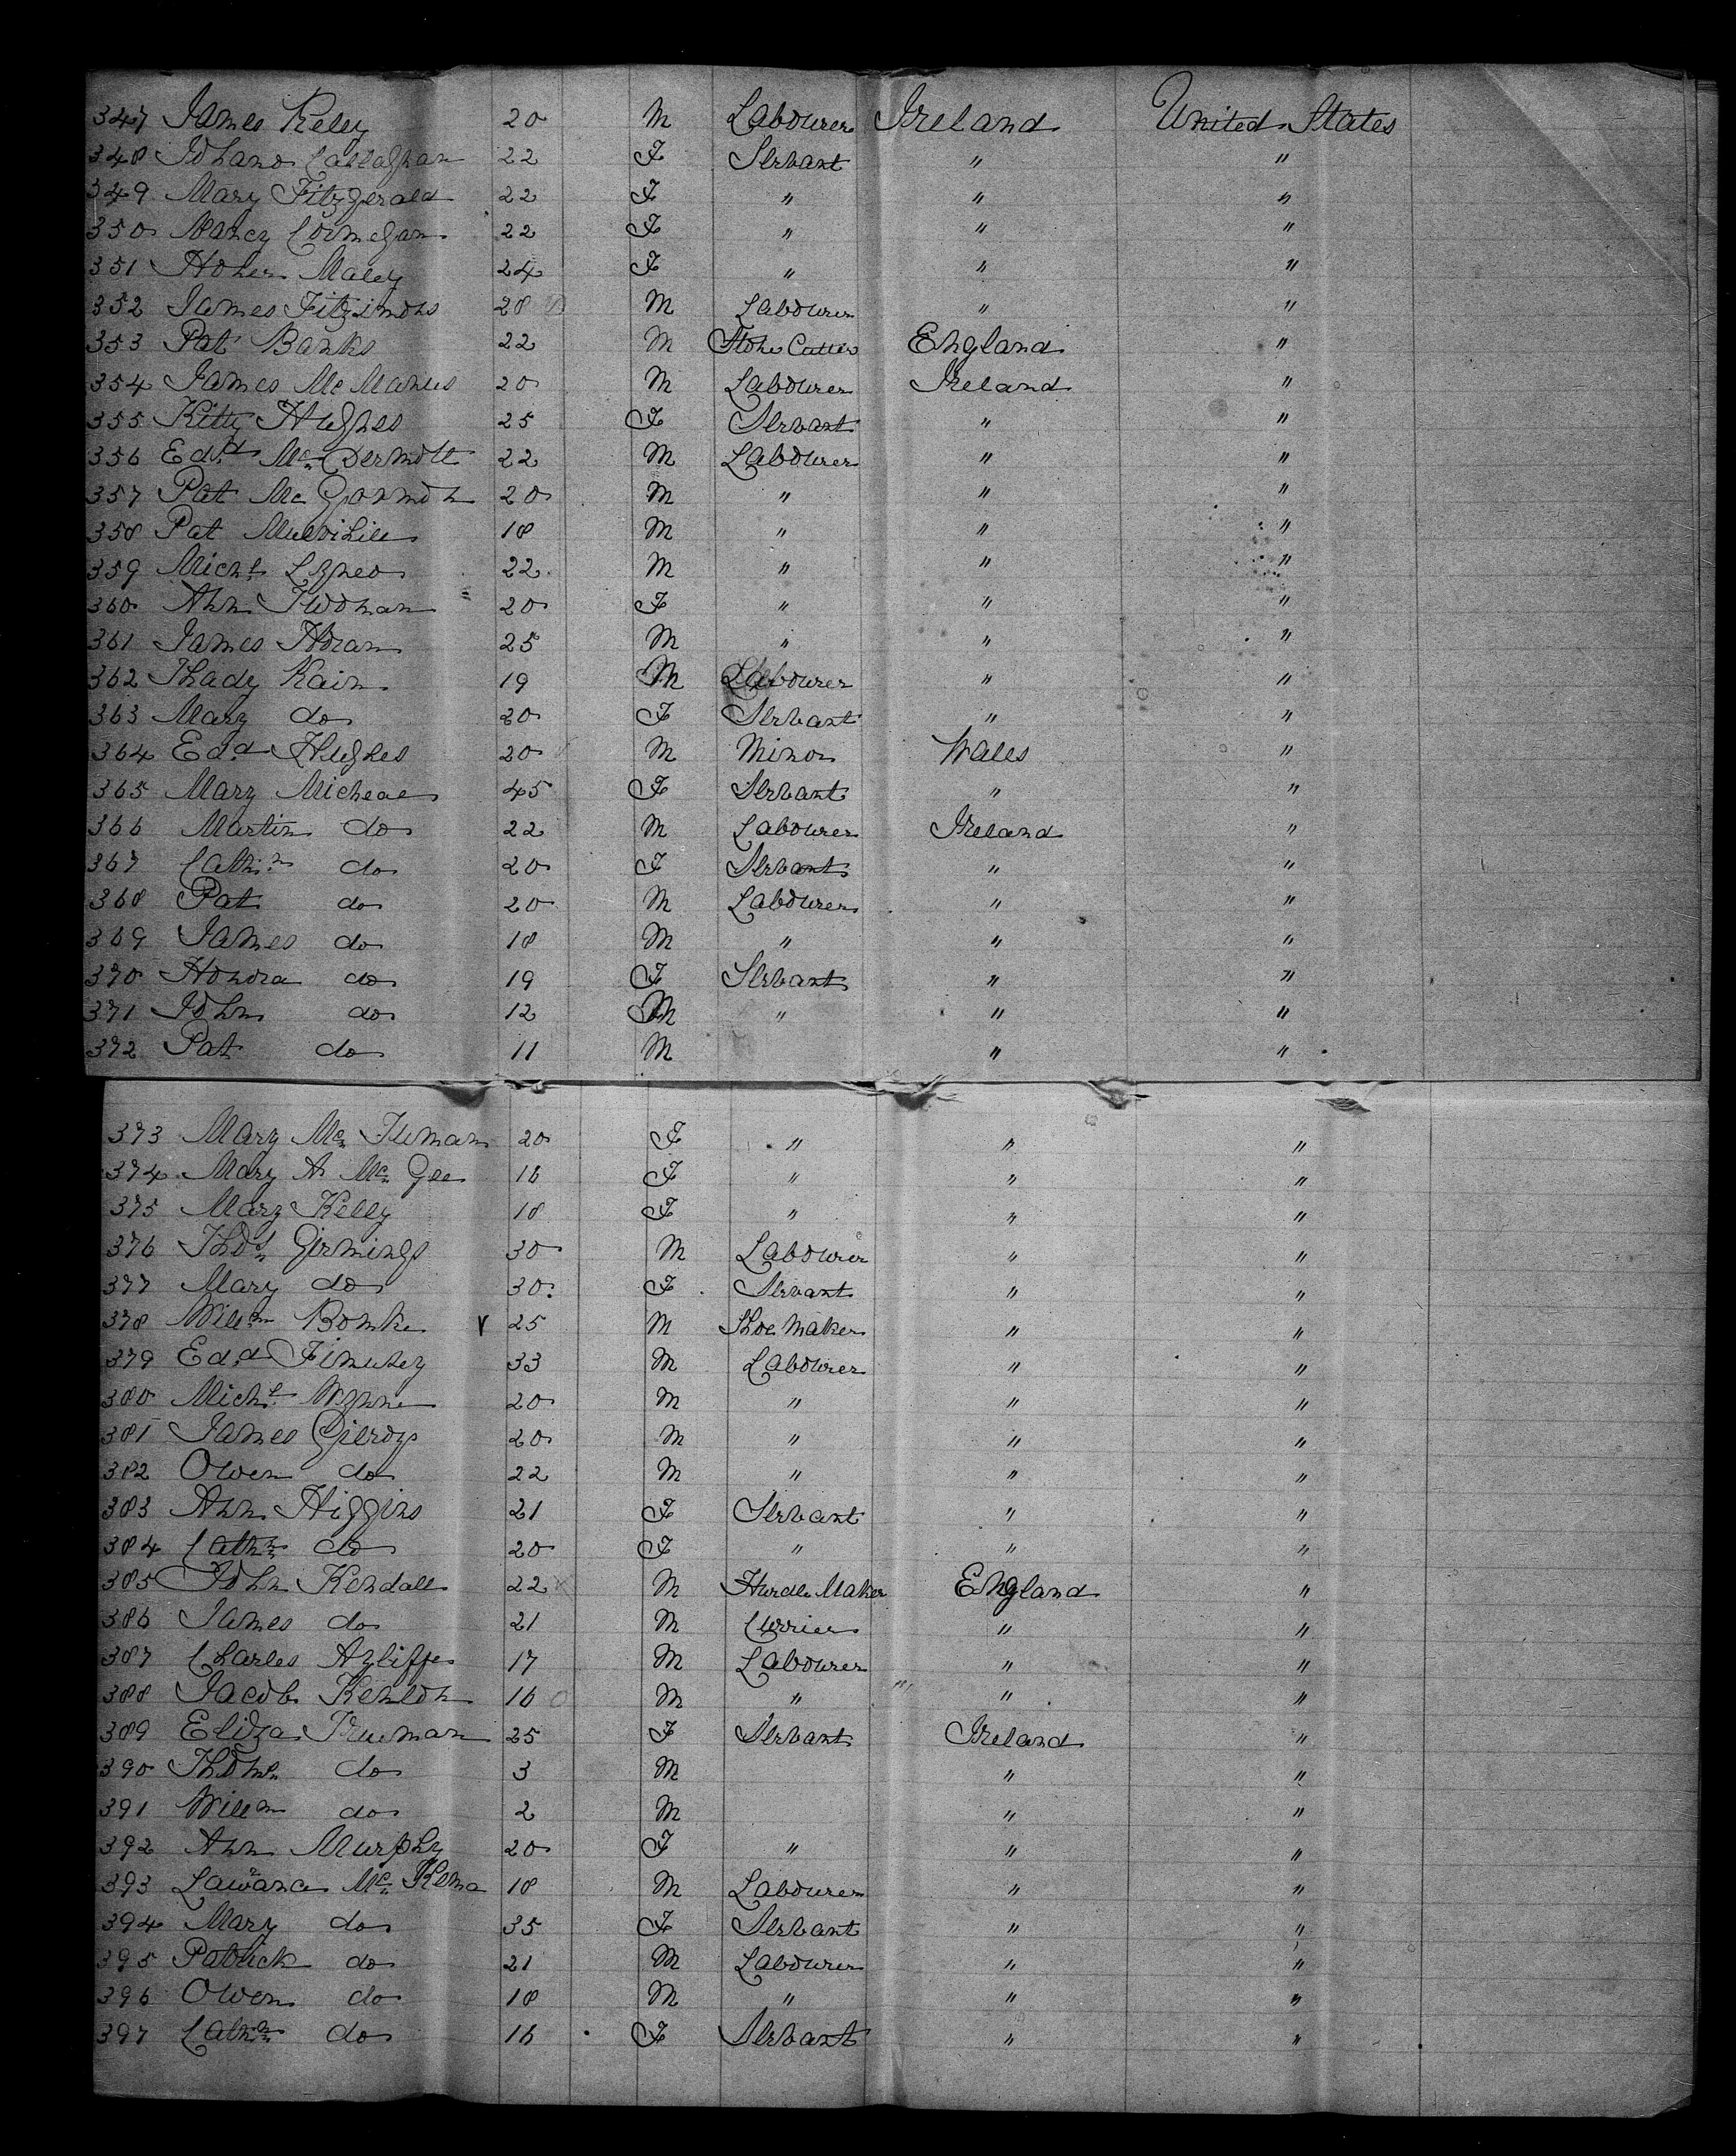 347 James Keley 20 M Labourer Ireland United States
348 Johano Callaghan 22 F Servant " "
349 Mary Fitzgerald 22 F " " "
350 Nancy 22 F " " "
351 Maley 24 F " " "
352 James Fitzsimons 28 M Labourer " "
353 Pat Banks 22 M Stone Cutter England "
354 James McManus 20 M Labourer Ireland "
355 Kitty Hughes 25 F Servant " "
356 Edwd McDermott 22 M Labourer " "
357 Pat McGormon 20 M " " "
358 Pat Mulvihill 18 M " " "
359 Michl 22 M " " "
360 Ann 20 F " " "
361 James Horan 25 M " " "
362 Thady Kain 19 M Labourer " "
363 Mary do 20 F Servant " "
364 Edd Hughes 20 M Minor Wales "
365 Mary Micheal 45 F Servant " "
366 Martin do 22 M Labourer Ireland "
367 Cathn do 20 F Servant " "
368 Pat do 20 M Labourer " "
369 James do 18 M " " "
370 Honora do 19 F Servant " "
371 John do 12 M " " "
372 Pat do 11 M " "
373 Mary Mc 20 F " " "
374 Mary A McGee 16 F " " "
375 Mary Kelly 18 F " " "
376 Thos 30 M Labourer " "
377 Mary do 30 F Servant " "
378 Willm 25 M Shoe Maker " "
379 Edd 33 M Labourer " "
380 Michl Wynne 20 M " " "
381 James Gilroy 20 M " " "
382 Owen do 22 M " " "
383 Ann Higgins 21 F Servant " "
384 Cathn do 20 F " " "
385 John Kendall 22 M Hurdle Maker England "
386 James do 21 M Currier " "
387 Charles Ayliffe 17 M Labourer " "
388 Jacob 16 M " " "
389 Eliza Truman 25 F Servant Ireland "
390 Thoms do 3 M " "
391 Willm do 2 M " "
392 Ann Murphy 20 F " " "
393 Lawranc McKena 18 M Labourer " "
394 Mary do 35 F Servant " "
395 Patrick do 21 M Labourer " "
396 Owen do 18 M " " "
397 Cathn do 16 F Servant " "